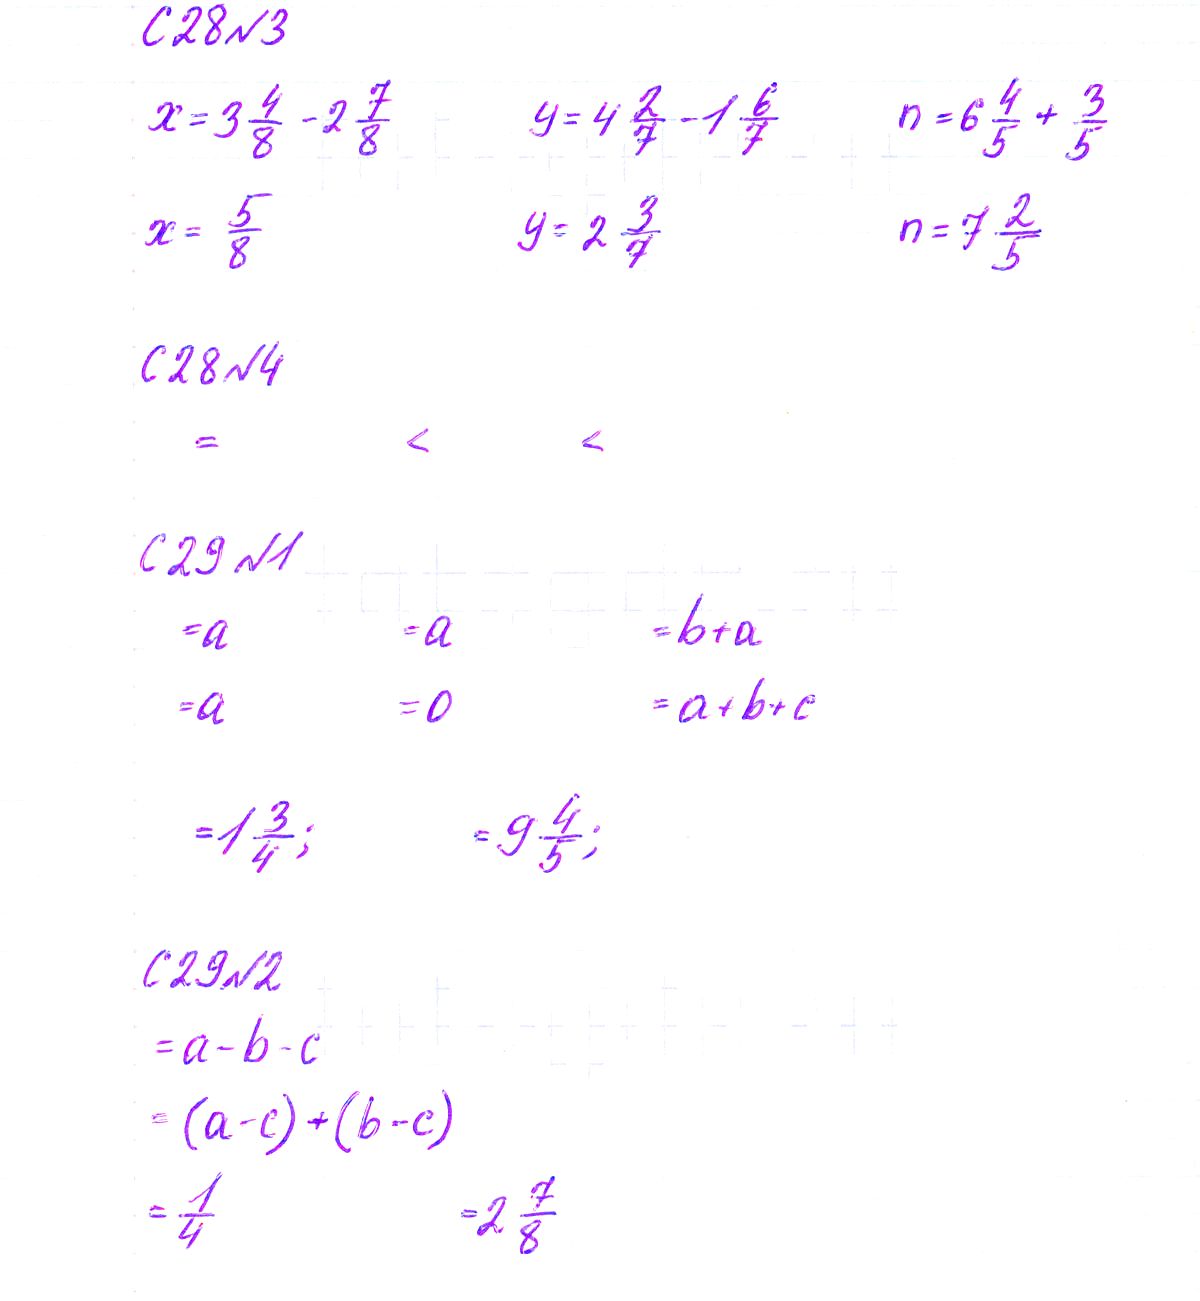 С28№3
x = 3 4/8 - 2 7/8 y = 4 2/7 - 1 6/7 n = 6 4/5 + 3/5
x = 5/8 y = 2 3/7 n = 7 2/5
С28№4
= < <
С29№1
= a = a = b + a
= a = 0 = a + b + c
= 1 3/4; = 9 4/5;
С29№2
= a - b - c
= (a - c) + (b - c)
= 1/4 = 2 7/8